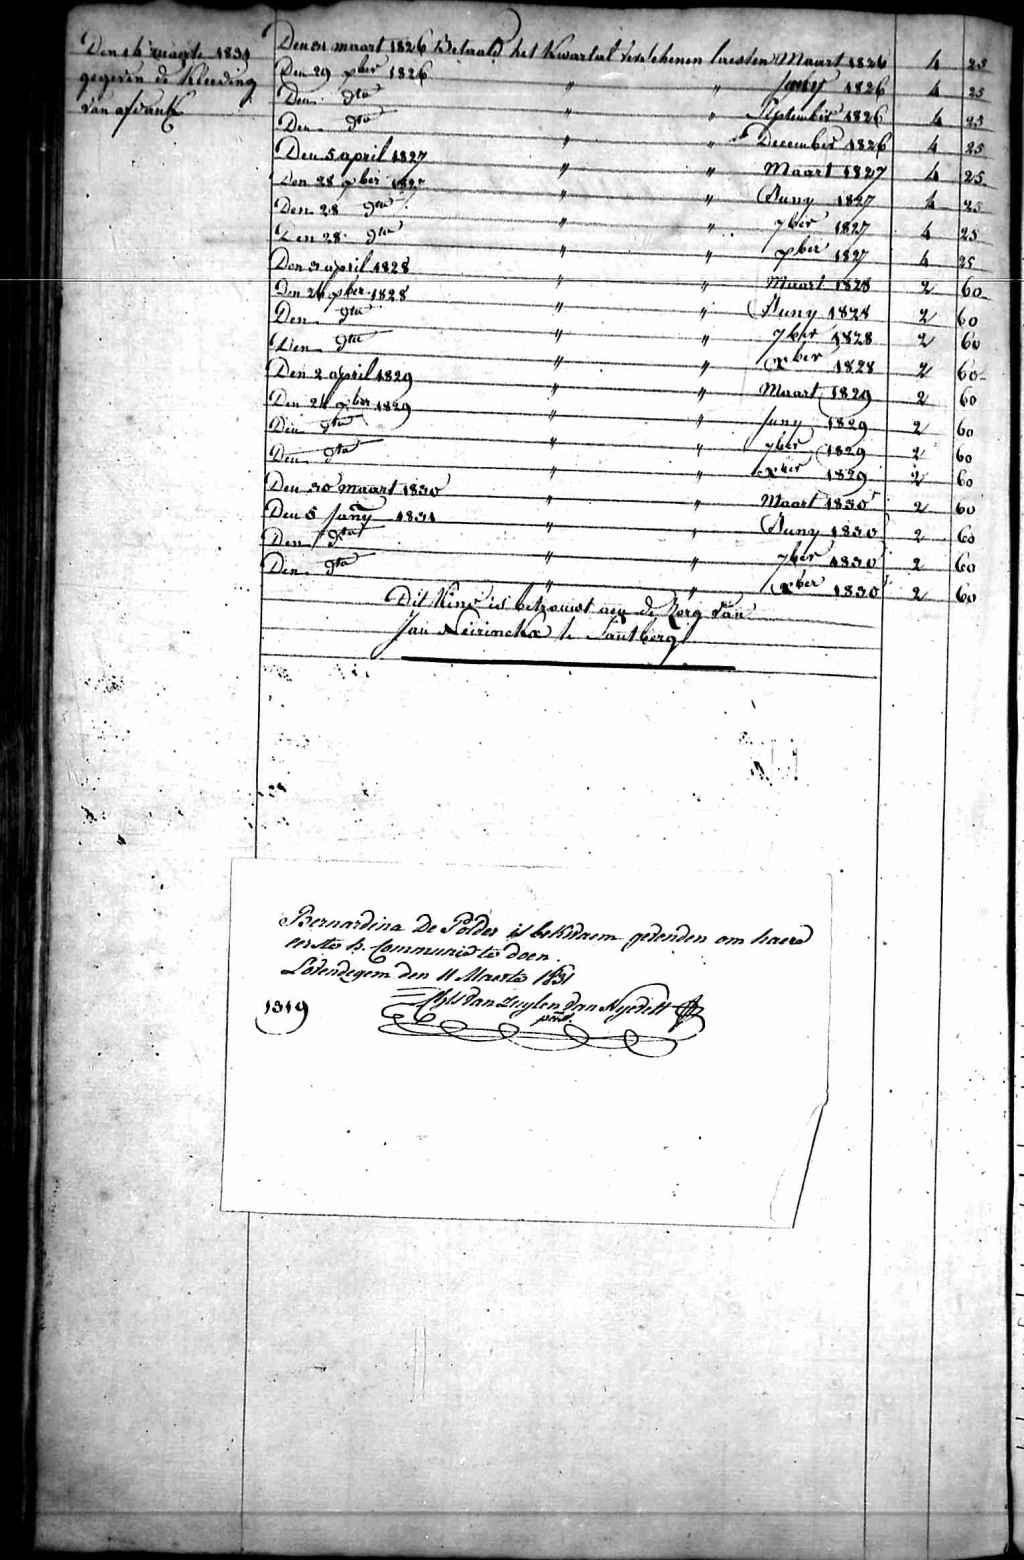 Den 16 maarte 1831
gegeven de Kleeding
van afdank
Den 31 maart 1826 Betaald het Kwartal verschenen laesten Maart 1826 4 25
Den 29 xber 1826 " " Juny 1826 4 25
Den dto " " September 1826 4 25
Den dto " " December 1826 4 25
Den 5 april 1827 " " Maart 1827 4 25
Den 28 xber 1827 " " Juny 1827 4 25
Den 28 dto " " 7ber 1827 4 25
Den 28 dto " " xber 1827 4 25
Den 3 april 1828 " " Maart 1828 2 60
Den 24 xber 1828 " " Juny 1828 2 60
Den dto " " 7ber 1828 2 60
Den dto " " xber 1828 2 60
Den 2 april 1829 " " Maart 1829 2 60
Den 24 xber 1829 " " Juny 1829 2 60
Den dto " " 7ber 1829 2 60
Den dto " " xber 1829 2 60
Den 30 maart 1830 " " Maart 1830 2 60
Den 5 Jany 1831 " " Juny 1830 2 60
Den dto " " 7ber 1830 2 60
Den dto " " xber 1830 2 60
Dit Kind is betrouwt aen de Zorg van
Jan Neirinckx te Santberg
Bernardina De Polder is bekwaem gevonden om haere
eerste h. Communie te doen.
Lovendegem den 11 Maerte 1831
1319 van Zuylen van Nyevelt
past.